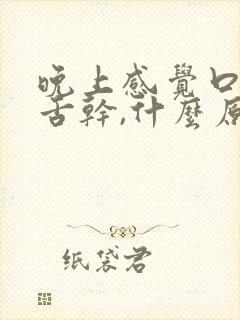 晚上感覺口
舌幹,什麼原
纸袋君